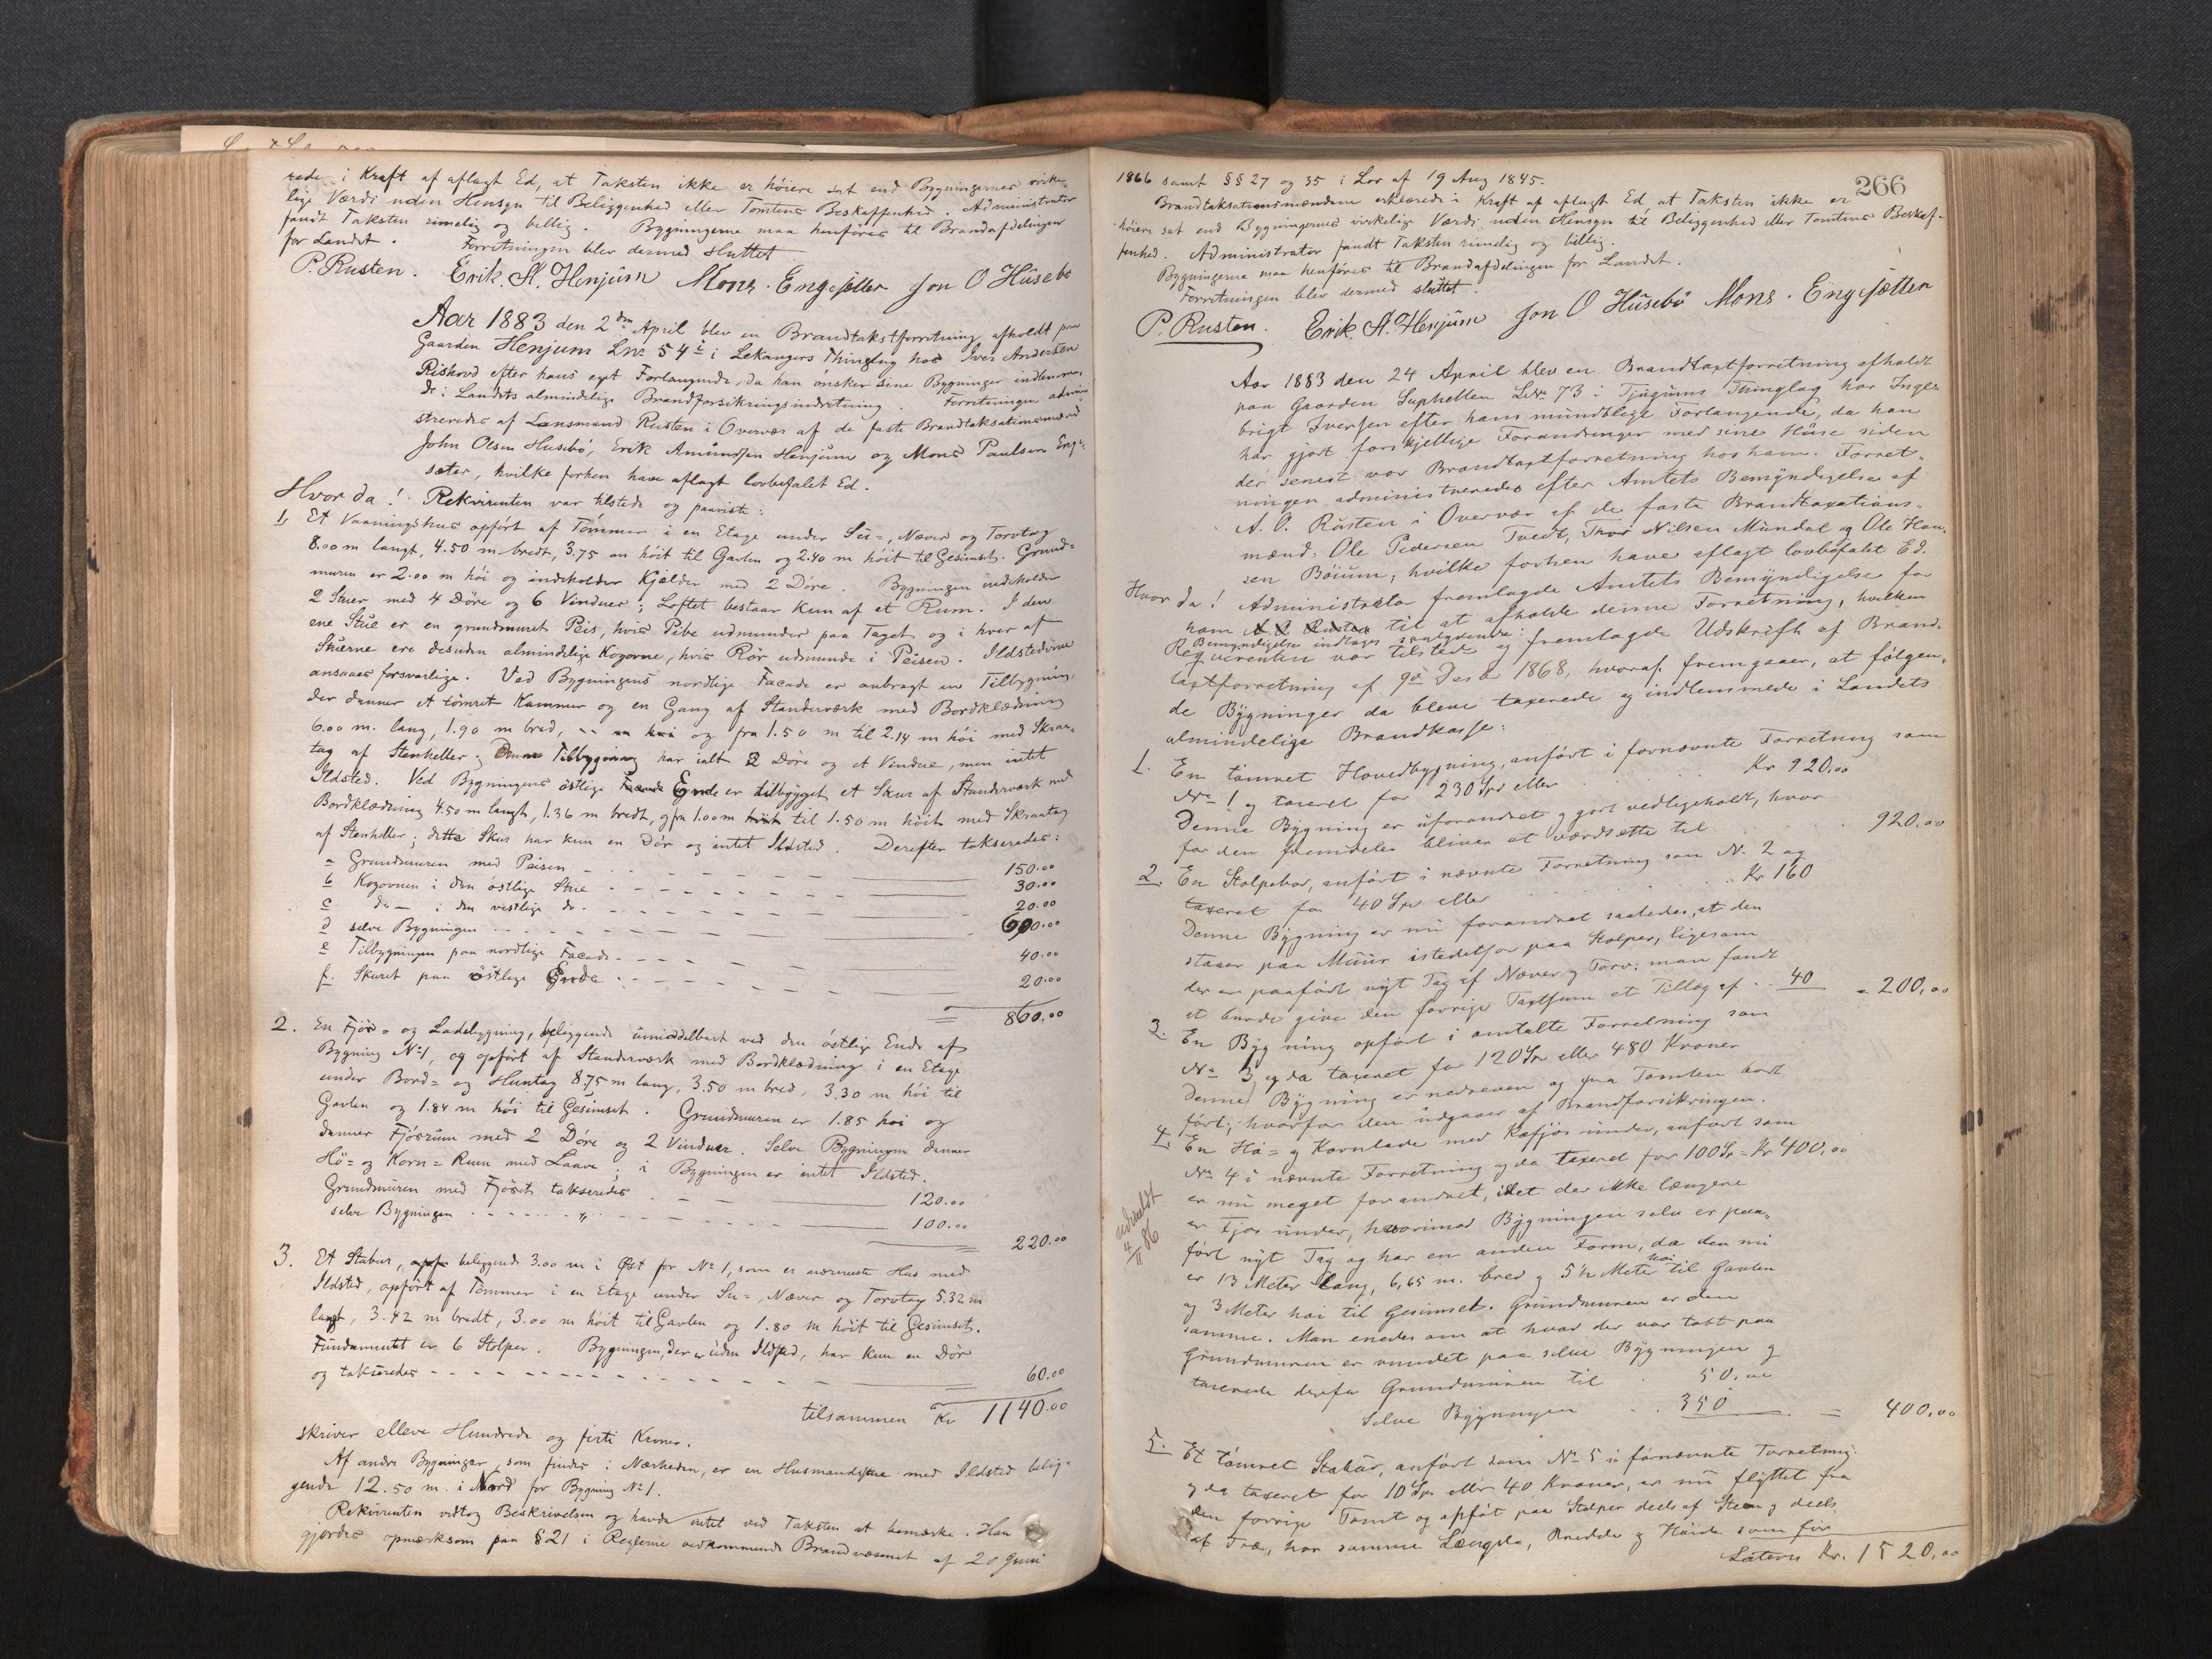 rede i Kraft af aflagt Ed, at Taksten ikke er høiere sat end Bygningernes virke-
lige Værdi uden Hensyn til Beliggenhed eller Tomtens Beskaffenhed. Administrator
fandt Taksten rimelig og billig. Bygningerne maa henføres til Brandafdelingen
for Landet. Forretningen blev dermed sluttet
P. Rusten. Erik. A. Henjum Mons. Engesætter Jon O Husebø
Aar 1883 den 2den April blev en Brandtakstforretning afholdt paa
Gaarden Henjum Lno 54 i Lekangers Thinglag hos Iver Andersen
Riskovd efter hans eget Forlangende, da han ønsker sine Bygninger indlemme-
de i Landets almindelige Brandforsikringsindretning. Forretningen admini-
streredes af Lensmand Rusten i Overvær af de faste Brandtaksationsmænd
John Olsen Husebø, Erik Amundsen Henjum og Mons Paulsen Enge-
sæter, hvilke forhen have aflagt lovbefalet Ed.
Hvor da! Rekvirenten var tilstede og paaviste:
1, Et Vaaningshus opført af Tømmer i en Etage under Su-, Næver og Torvtag
8.00 m langt, 4.50 m bredt, 3.75 m høit til Gavlen og 2.40 m høit til Gesimset. Grund-
muren er 2.00 m høi og indeholder Kjelder med 2 Døre. Bygningen indeholder
2 Stuer med 4 Døre og 6 Vinduer; Loftet bestaar kun af et Rum. I den
ene Stue er en grundmuret Peis, hvis Pibe udmunder paa Taget og i hver af
Stuerne ere desuden almindelige Kogovne, hvis Rør udmunde i Peisen. Ildstederne
ansaaes forsvarlige. Ved Bygningens nordlige Facade er anbragt en Tilbygning,
der danner et tømret Kammer og en Gang af Standerværk med Bordklædning
6.00 m. lang, 1.90 m bred, og fra 1.50 m til 2.14 m høi med Skraa-
tag af Stenheller; Denne Tilbygning har ialt 2 Døre og et Vindue, men intet
Ildsted. Ved Bygningens østlige Ende er tilbygget et Skur af Standerværk med
Bordklædning 4.50 m langt, 1.36 m bredt, og fra 1.00 m til 1.50 m høit med Skraatag
af Stenheller; dette Skur har kun en Dør og intet Ildsted. Derefter takseredes:
a Grundmuren med Peisen 150.00
b Kogovnen i den østlige Stue 30.00
c do — i den vestlige do. 20.00
d selve Bygningen 600.00
e Tilbygningen paa nordlige Facade 40.00
f. Skuret paa østlige Ende 20.00
= 860.00
2. En Fjøs- og Ladebygning, beliggende umiddelbart ved den østlige Ende af
Bygning No 1, og opført af Standerværk med Bordklædning i en Etage
under Bord- og Huntag 8.75 m lang, 3.50 m bred, 3.30 m høi til
Gavlen og 1.84 m høi til Gesimset. Grundmuren er 1.85 høi og
danner Fjøsrum med 2 Døre og 2 Vinduer. Selve Bygningen danner
Hø- og Korn-Rum med Laave; i Bygningen er intet Ildsted.
Grundmuren med Fjøset takseredes 120.00
selve Bygningen " 100.00
= 220.00
3. Et Stabur, beliggende 3.00 m i Øst for No 1, som er nærmeste Hus med
Ildsted, opført af Tømmer i en Etage under Su-, Næver og Torvtag 5.32 m
langt, 3.42 m bredt, 3.00 m høit til Gavlen og 1.80 m høit til Gesimset.
Fundamentet er 6 Stolper. Bygningen, der er uden Ildsted, har kun en Dør
og takseredes 60.00
tilsammen Kr 1140.00
skriver elleve Hundrede og firti Kroner.
Af andre Bygninger, som findes i Nærheden, er en Husmandsstue med Ildsted belig-
gende 12.50 m. i Nord for Bygning No 1.
Rekvirenten vedtog Beskrivelsen og havde intet ved Taksten at bemærke. Han
gjordes opmærksom paa § 21 i Reglerne vedkommende Brandvæsenet af 20 Juni
266
1866 samt §§ 27 og 35 i Lov af 19 Aug 1845.
Brandtaksationsmændene erklærede i Kraft af aflagt Ed, at Taksten ikke er
høiere sat end Bygningernes virkelige Værdi uden Hensyn til Beliggenhed eller Tomtens Beskaf-
fenhed. Administrator fandt Taksten rimelig og billig.
Bygningerne maa henføres til Brandafdelingen for Landet.
Forretningen blev dermed sluttet.
P. Rusten. Erik. A. Henjum Jon O Husebø Mons. Engesætter
Aar 1883 den 24 April blev en Brandtaxtforretning afholdt
paa Gaarden Suphellen LNr 73 i Fjærums Thinglag hos Inge-
brigt Iversen efter hans mundtlige Forlangende, da han
har gjort forskjellige Forandringer med sine Huse siden
der senest var Brandtaxtforretning hos ham. Forret-
ningen administreredes efter Amtets Bemyndigelse af
A. O. Rusten i Overvær af de faste Brandtaxations-
mænd: Ole Pedersen Tvedt, Thor Nilsen Mundal og Ole Han-
sen Bøium, hvilke forhen have aflagt lovbefalet Ed.
Hvor da! Administrator fremlagde Amtets Bemyndigelse for
ham til at afholde denne Forretning, hvilken
Bemyndigelse indtages saalydende:
Reqvirenten var tilstede og fremlagde Udskrift af Brand-
taxtforretning af 9de Dec 1868, hvoraf fremgaaer, at følgen-
de Bygninger da bleve taxerede og indlemmede i Landets
almindelige Brandkasse:
1. En tømret Hovedbygning, anført i fornævnte Forretning som
No 1 og taxeret for 230 Spd eller Kr 920.00
Denne Bygning er uforandret og godt vedligeholdt, hvor
for den fremdeles bliver at værdsætte til 920.00
2. En Stolpebod, anført i nævnte Forretning som No 2 og
taxeret for 40 Spd eller Kr 160
Denne Bygning er nu forandret saaledes, at den
staaer paa Muur istedetfor paa Stolper, ligesom
der er paaført nyt Tag af Næver og Torv: man fandt
at burde give den forrige Taxtsum et Tillæg af 40 = 200,00
3. En Bygning opført i omtalte Forretning som
No 3 og da taxeret for 120 Spd eller 480 Kroner
Denne Bygning er nedreven og fra Tomten bort
ført, hvorfor den udgaaer af Brandforsikringen.
4. En Hø- og Kornlade med Kofjøs under, anført som
No 4 i nævnte Forretning og da taxeret for 100 Sp = Kr 400,00
er nu meget forandret, idet der ikke længere
er Fjøs under, hvorimod Bygningen selv er paa-
ført nyt Tag og har en anden Form, da den nu
er 13 Meter lang, 6,65 m. bred og 5½ Meter høi til Gavlen
og 3 Meter høi til Gesimset. Grundmuren er den
samme. Man enedes om at hvad der var tabt paa
Grundmuren er vundet paa selve Bygningen og
taxerede derfor Grundmuren til 50,00
Selve Bygningen 350 = 400,00
udmeldt
4/11 86
5. Et tømret Stabur, anført som No 5 i fornævnte Forretning
og da taxeret for 10 Spd eller 40 Kroner, er nu flyttet fra
den forrige Tomt og opført paa Stolper deels af Steen og deels
af Træ, har samme Længde, Bredde og Høide som før
Latus Kr. 1520,00